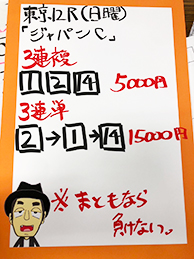 東京12R(日曜)
「ジャパンC」
3連複
1 2 14 5000円
3連単
2→1→14 15000円
※まともなら
負けない。